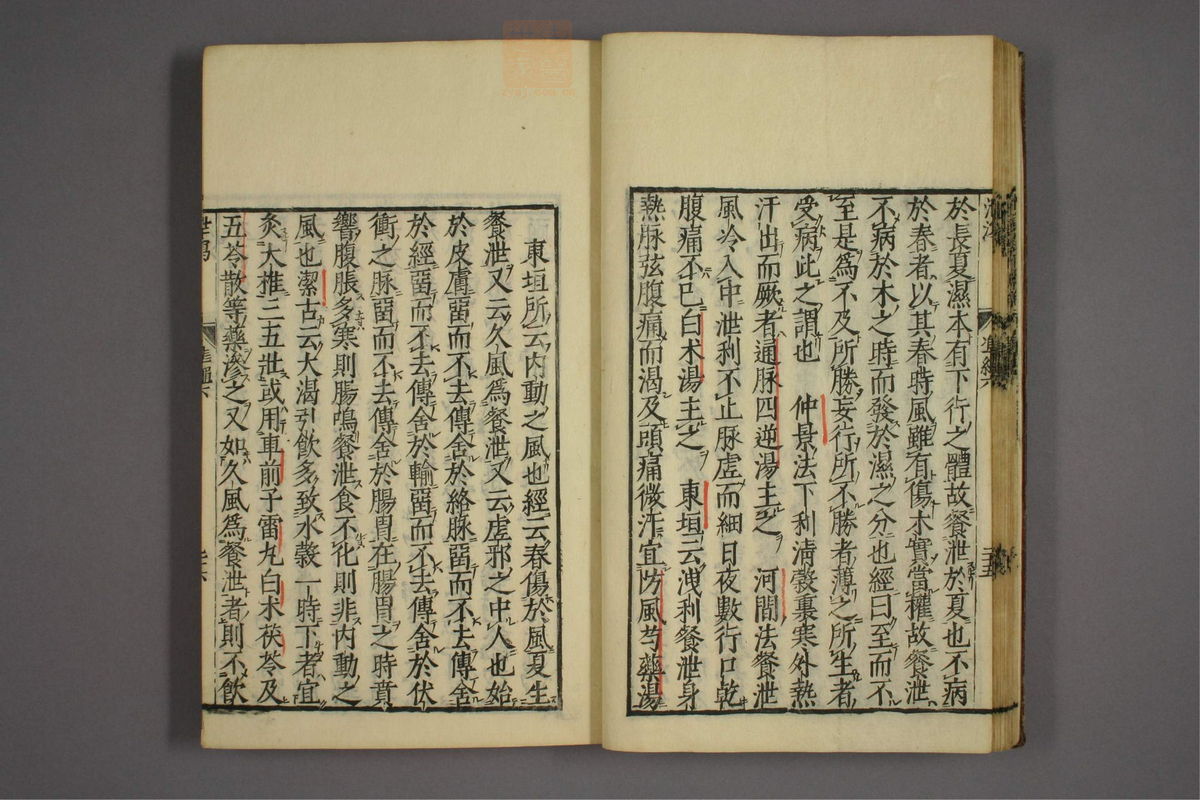 於長夏濕本有下行之體故飧泄於夏也不病
於春者以其春時風雖有傷木實當權故飧泄
不病於木之時而發於濕之分也經曰至而不
至是為不及所勝妄行所不勝者薄之所生者
受病此之謂也　仲景法下利清穀裏寒外熱
汗出而厥者通脉四逆湯主之　河間法飧泄
風冷入中泄利不止脉虛而細日夜數行口乾
腹痛不已白术湯主之　東垣云洩利飧泄身
熱脉弦腹痛而渴及頭痛微汗宜防風芍藥湯
東垣所云內動之風也經云春傷於風夏生
飧泄又云久風為飧泄又云虛邪之中人也始
於皮膚畱而不去傳舍於絡脉畱而不去傳舍
於經畱而不去傳舍於輸畱而不去傳舍於伏
衝之脉畱而不去傳舍於腸胃在腸胃之時賁
響腹脹多寒則腸鳴飧泄食不化則非內動之
風也潔古云大渴引飲多致水穀一時下者宜
灸大椎三五壯或用車前子雷丸白术茯苓及
五苓散等藥滲之又如久風為飧泄者則不飲